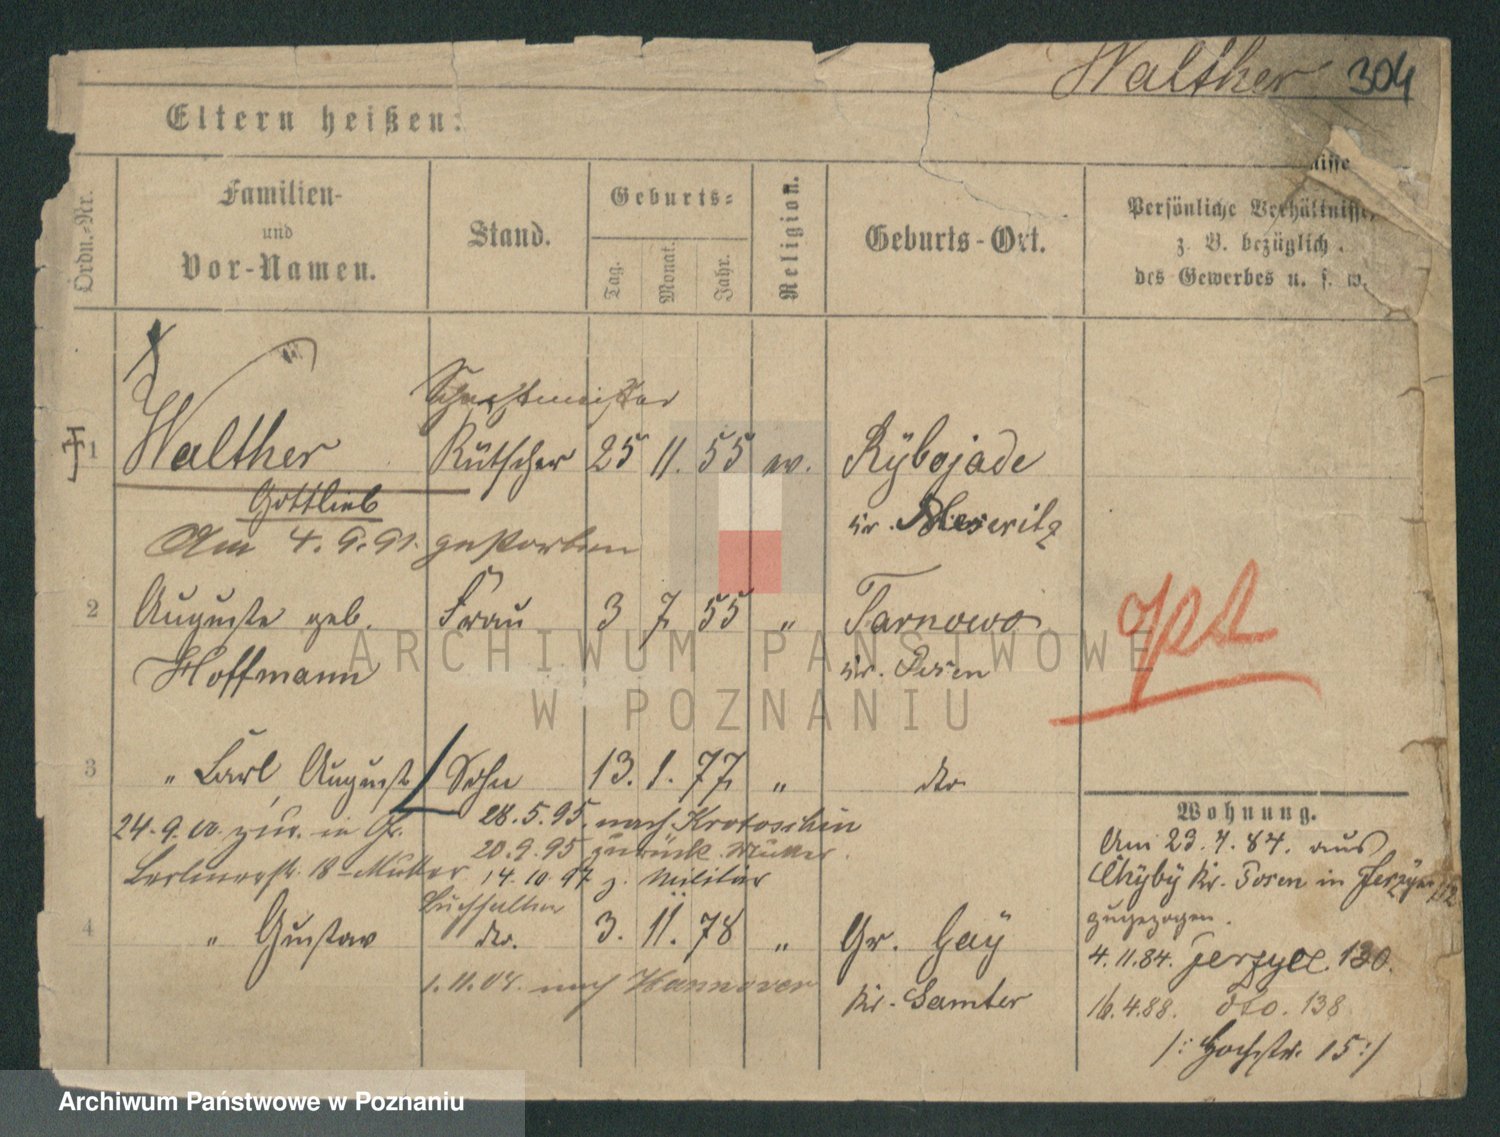 Walther 304
Eltern heißen:
Ordn.-Nr.
Familien-
und
Vor-Namen.
Stand.
Geburts-
Tag.
Monat.
Jahr.
Religion.
Geburts-Ort.
nisse
Persönliche Verhältnisse,
z. B. bezüglich
des Gewerbes u. s. w.
Schachtmeister
1 Walther Kutscher 25 11. 55 ev. Rybojade
Gottlieb Kr. Meseritz
Am 4. 9. 91. gestorben
2 Auguste geb. Frau 3 7 55 " Tarnowo
Hoffmann Kr. Posen
opt
3 " Carl August Sohn 13. 1. 77 " dto
24.9.00. zur. in
28.5.95. nach Krotoschin
20.9.95 zurück. Mutter.
Berlinerstr. 18 Mutter 14.10.97 z. Militär
Buchhalter
4 " Gustav dto. 3. 11. 78 " Gr. Gay
1.11.04. nach Hannover Kr. Samter
Wohnung.
Am 23.4.84. aus
Chyby Kr. Posen in Jerzyce 112
zugezogen.
4.11.84. Jerzyce 130.
16.4.88. dto. 138
/: Hochstr. 15 :/
ARCHIWUM PAŃSTWOWE
W POZNANIU
Archiwum Państwowe w Poznaniu